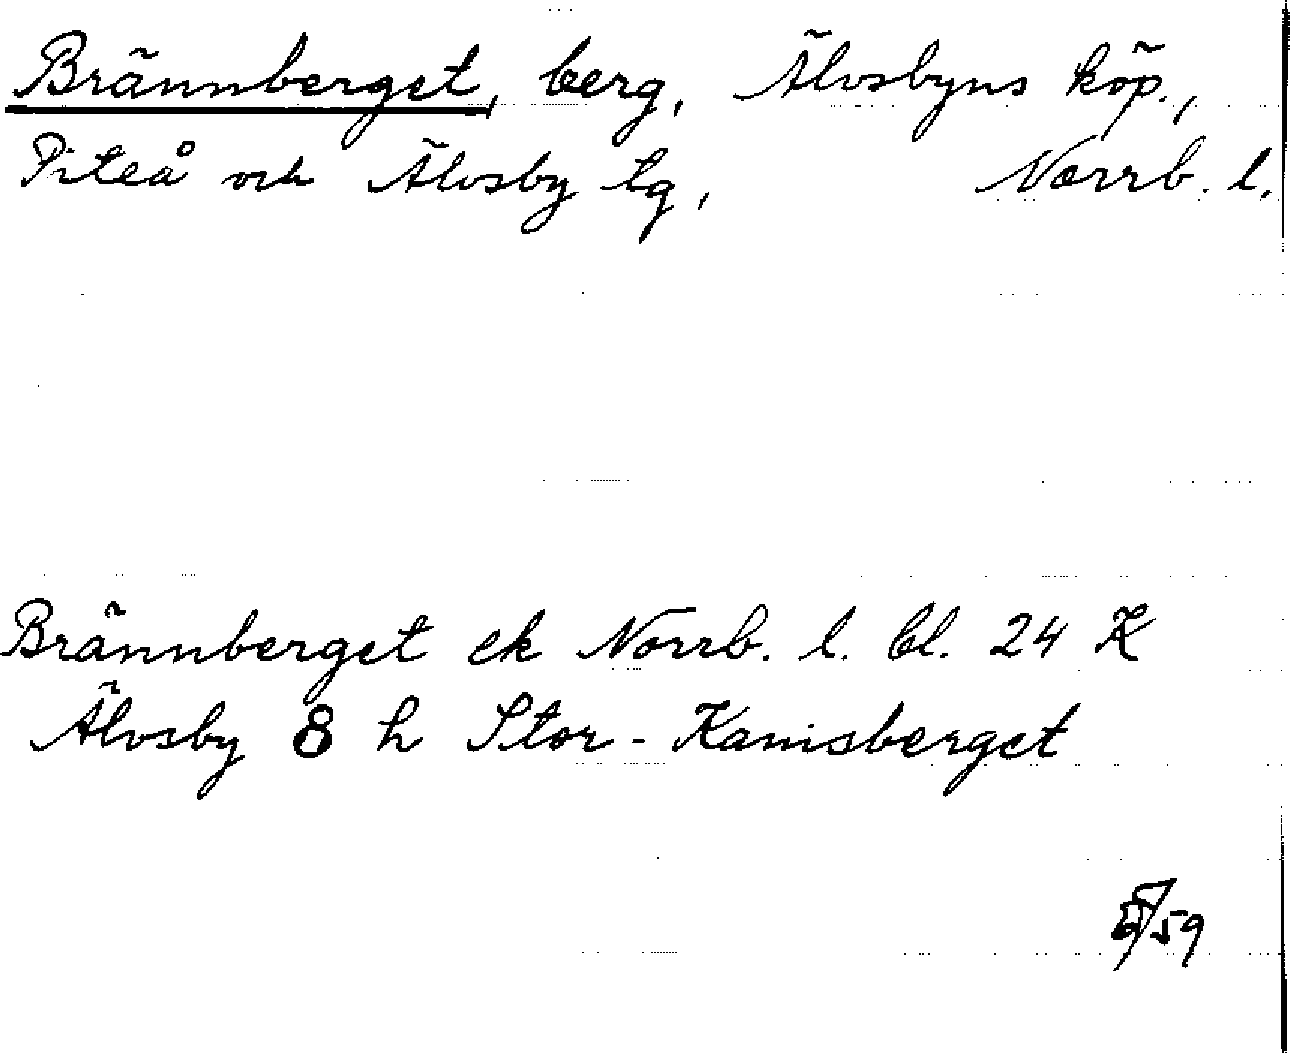 Brännberget, berg, Älvsbyns köp.,
Piteå och Älvsby tg, Norrb. l.
Brännberget ek Norrb. l. bl. 24 K
Älvsby 8 h Stor-Kanisberget
/59